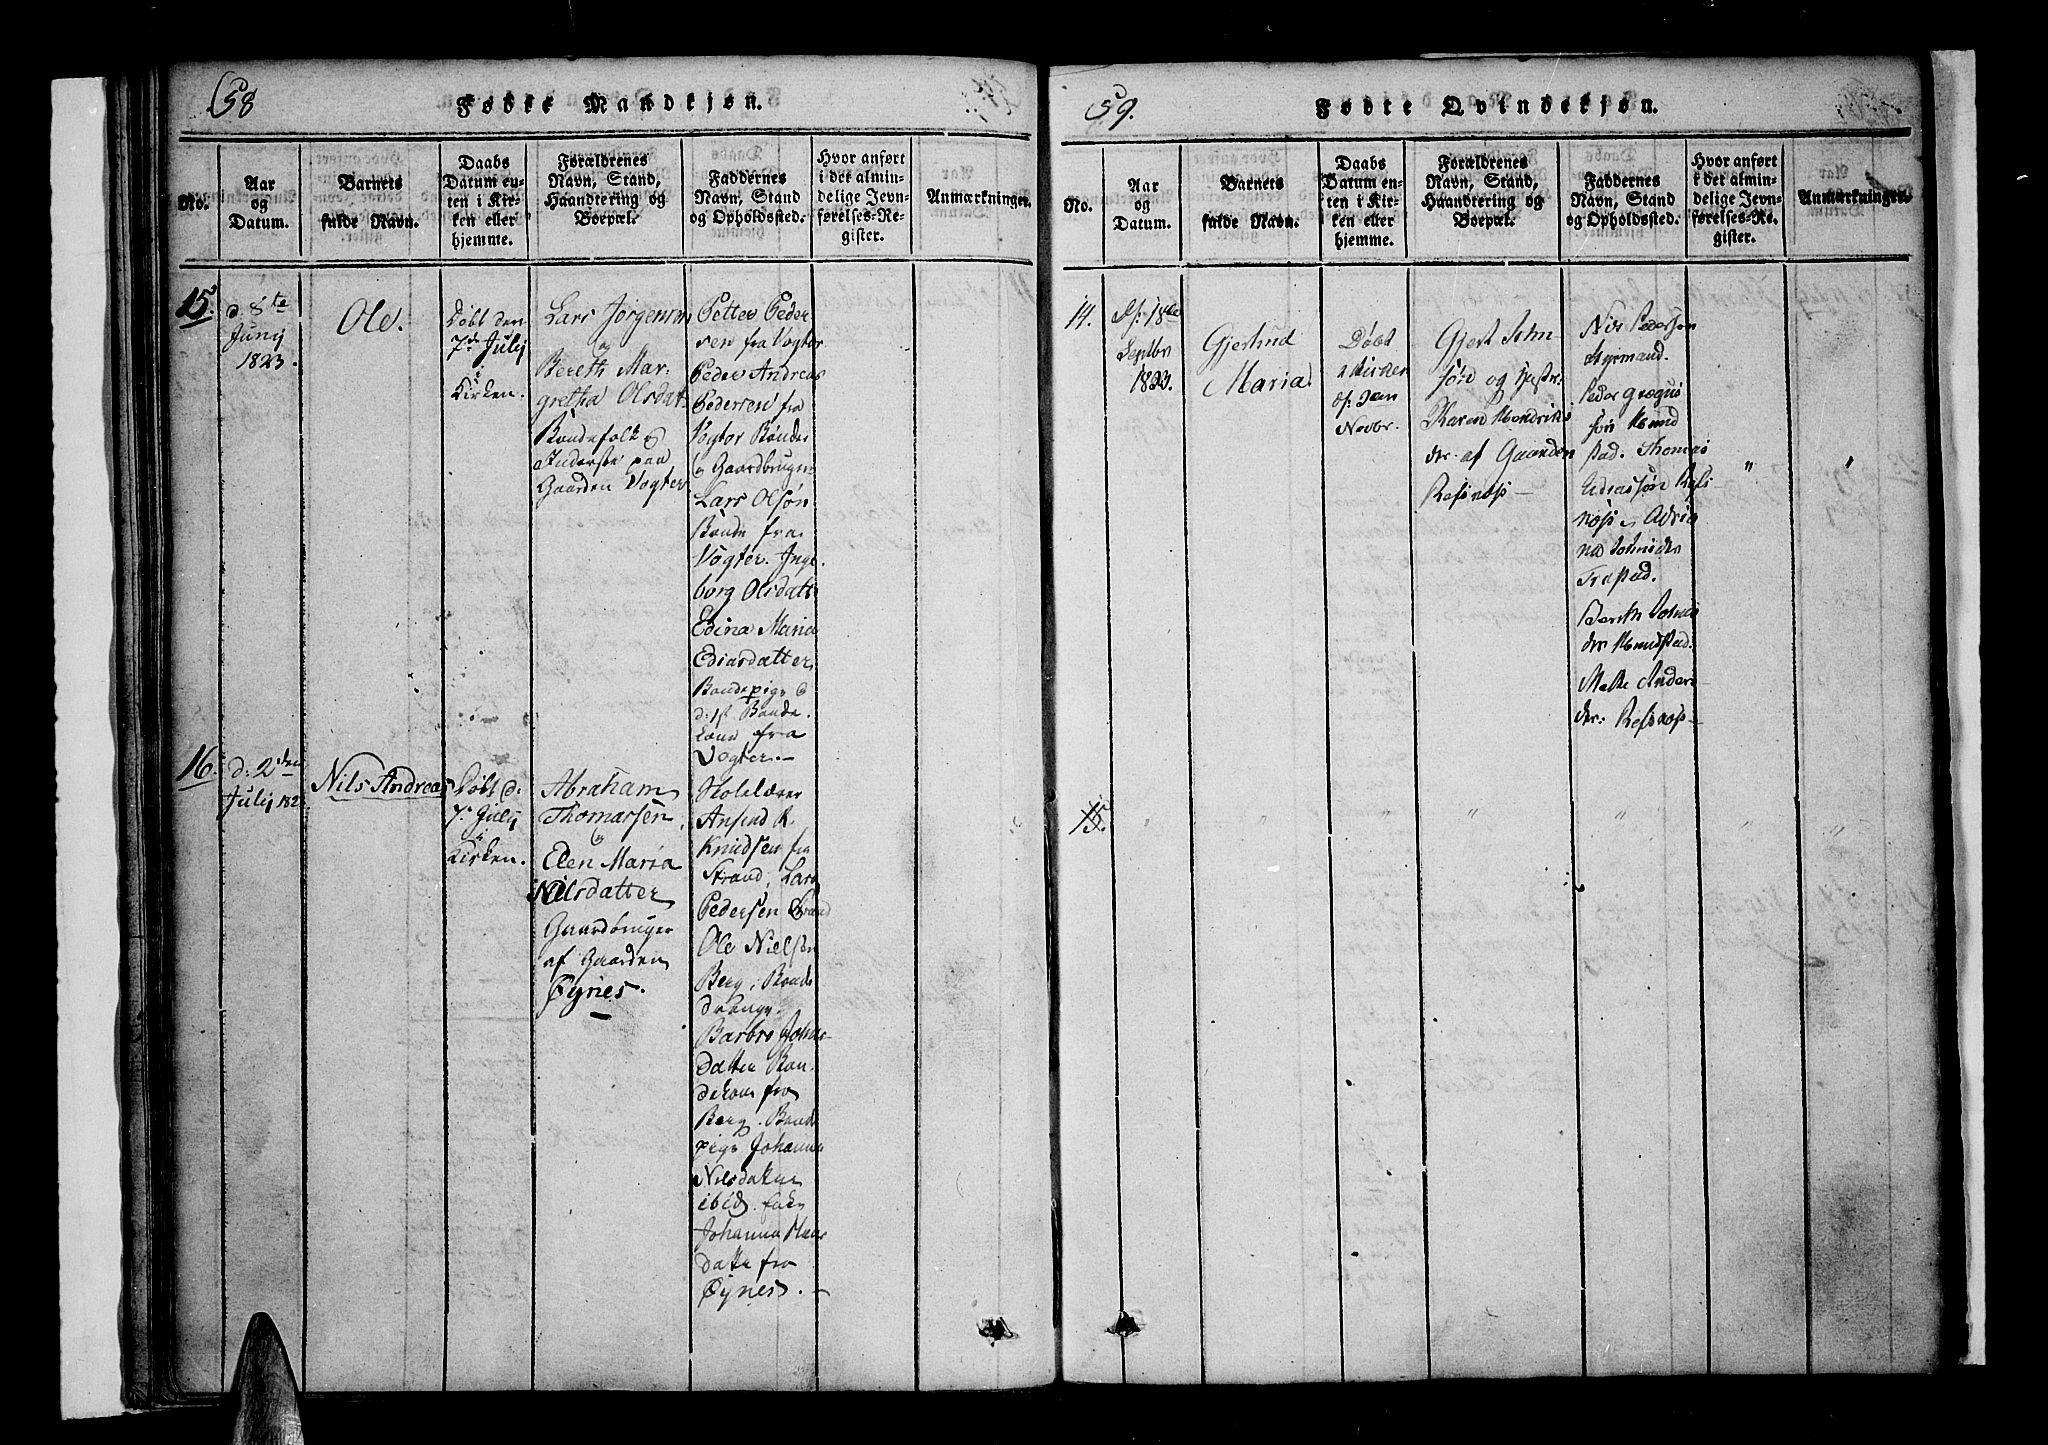 58
Fødte Mandkjøn.
No.
Aar
og
Datum.
Barnets
fulde Navn.
Daabs
Datum en-
ten i Kir-
ken eller
hjemme.
Forældrenes
Navn, Stand,
Haandtering og
Boepæl.
Faddernes
Navn, Stand
og Opholdssted.
Hvor anført
i det almin-
delige Jevn-
førelses-Re-
gister.
Anmærkninger.
15.
d. 8te
Junij
1823.
Ole.
Døbt den
7de Julij
i
Kirken.
Lars Jørgensen
og
Bereth Mar-
gretha Olsdat.
Bondefolk og
Inderste paa
Gaarden Vogter
Petter Peder
sen fra Vogter
Peder Andreas
Pedersen fra
Vogter Bønder
og Gaardbruger
Lars Olsøn
Bonde fra
Vogter. Inge
borg Olsdatt
Edina Maria
Ediasdatter
Bondepige
d: 1st Bonde
kone fra
Vogter.
16.
d. 2den
Julij 182
Nils Andreas
Døbt d.
7. Julij
i
Kirken.
Abraham
Thomassen
og
Elen Maria
Nilsdatter
af Gaarden
Øynes.
Skolelærer
Knudsen fra
Strand, Lars
Pedersen Strand
Ole Nielsen
Berg, Bonde
drenge
Barbro Johns
Datter Bon
dekone fra
Berg. Bond
pige Johanna
Nilsdatter
ibid. Enke
Johanna
datter fra
Øynes.
59.
Fødte Qvindekjøn.
No.
Aar
og
Datum.
Barnets
fulde Navn.
Daabs
Datum en-
ten i Kir-
ken eller
hjemme.
Forældrenes
Navn, Stand,
Haandtering og
Boepæl.
Faddernes
Navn, Stand
og Opholdssted.
Hvor anført
i det almin-
delige Jevn-
førelses-Re-
gister.
Anmærkninger.
14.
d: 18de
Septbr
1823.
Gjertrud
Maria.
Døbt
i Kirken
Novbr.
Gjert John
søn og Hustru
Karen Hendriks
dr. af Gaarden
Refsnæs
Nils Pedersøn
Styrmand.
Peder Gregus
søn Knud
stad. Thomas
Refs
næs, Adria
na Johnsdr
Trastad.
Berith Johns
dr. Knudstad.
Mette Anders
dr. Refsnæs
" "
15. " " " " " " "